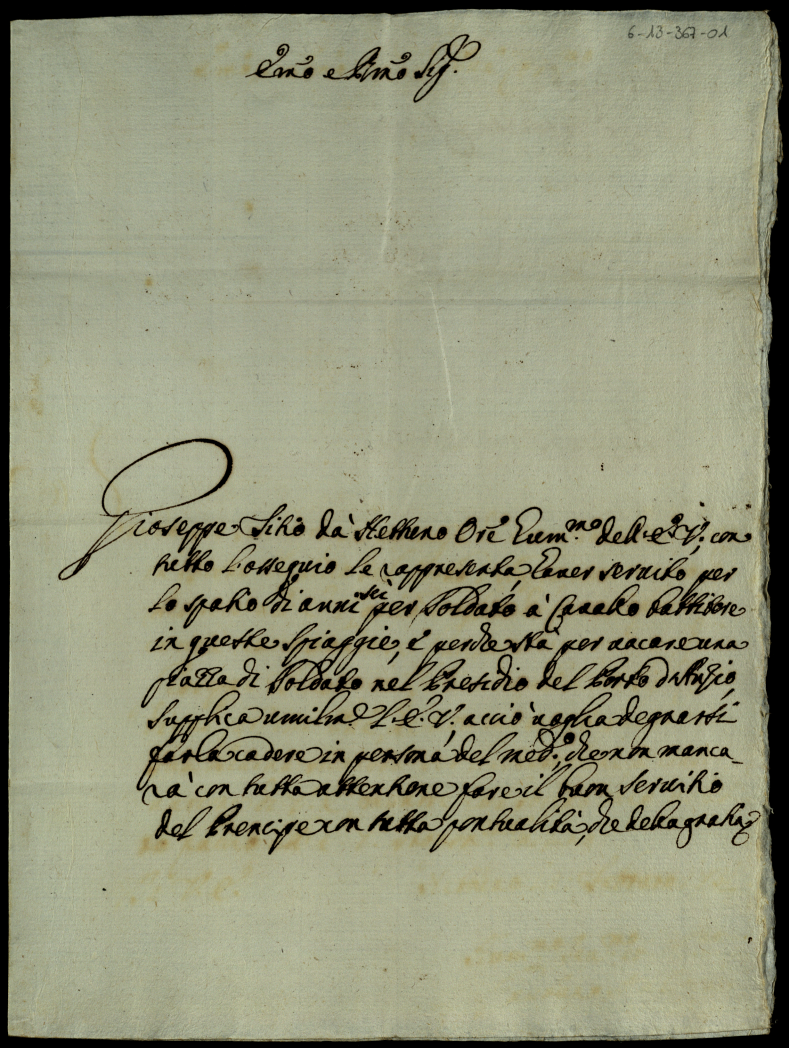 6-13-367-01
Emo e Rmo Sig.
Gioseppe Sitio da Netteno Ore Hum.mo dell'E. V. con
tutto l'ossequio le rappresenta, haver servito per
lo spatio di anni sei per Soldato à Cavallo battitore
in queste spiaggie, e perche stà per vacare una
piazza di Soldato nel Presidio del Porto d'Anzio,
supplica umilm.e l'E. V. acciò voglia degnarsi
farla cadere in persona del med.o che non manca_
rà con tutta attentione fare il buon servitio
del Prencipe con tutta pontualità, che della gratia